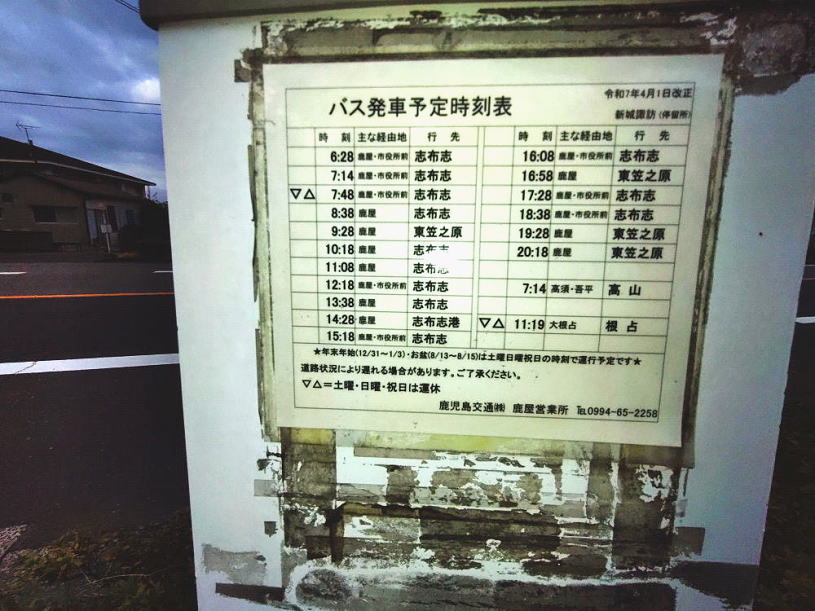 バス発車予定時刻表
令和7年4月1日改正
新城諏訪(停留所)
時 刻 主な経由地 行 先
6:28 鹿屋・市役所前 志布志
7:14 鹿屋・市役所前 志布志
▽△ 7:48 鹿屋・市役所前 志布志
8:38 鹿屋 志布志
9:28 鹿屋 東笠之原
10:18 鹿屋 志布志
11:08 鹿屋 志布志
12:18 鹿屋・市役所前 志布志
13:38 鹿屋 志布志
14:28 鹿屋 志布志港
15:18 鹿屋・市役所前 志布志
時 刻 主な経由地 行 先
16:08 鹿屋・市役所前 志布志
16:58 鹿屋 東笠之原
17:28 鹿屋・市役所前 志布志
18:38 鹿屋・市役所前 志布志
19:28 鹿屋 東笠之原
20:18 鹿屋 東笠之原
7:14 高須・吾平 高 山
▽△ 11:19 大根占 根 占
★年末年始(12/31～1/3)・お盆(8/13～8/15)は土曜日曜祝日の時刻で運行予定です★
道路状況により遅れる場合があります。ご了承ください。
▽△=土曜・日曜・祝日は運休
鹿児島交通㈱ 鹿屋営業所 ℡0994-65-2258